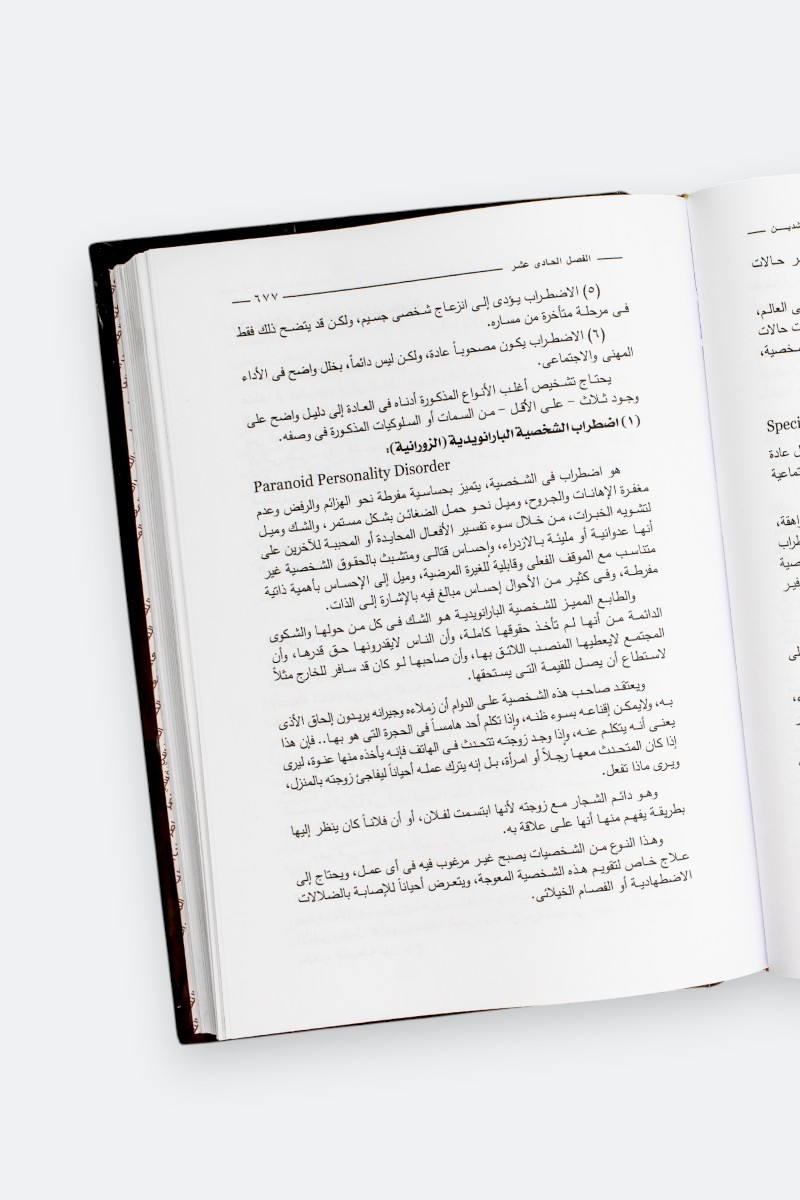 الفصل الحادى عشر ٦٧٧
(٥) الاضطراب يؤدى إلى انزعاج شخصى جسيم، ولكن قد يتضح ذلك فقط
فى مرحلة متأخرة من مساره.
(٦) الاضطراب يكون مصحوباً عادة، ولكن ليس دائماً، بخلل واضح فى الأداء
المهنى والاجتماعى.
يحتاج تشخيص أغلب الأنواع المذكورة أدناه فى العادة إلى دليل واضح على
وجود ثلاث – على الأقل – من السمات أو السلوكيات المذكورة فى وصفه.
(١) اضطراب الشخصية البارانويدية (الزورانية):
Paranoid Personality Disorder
هو اضطراب فى الشخصية، يتميز بحساسية مفرطة نحو الهزائم والرفض وعدم
مغفرة الإهانات والجروح، وميل نحو حمل الضغائن بشكل مستمر، والشك وميل
لتشويه الخبرات، من خلال سوء تفسير الأفعال المحايدة أو المحببة للآخرين على
أنها عدوانية أو مليئة بالازدراء، وإحساس قتالى ومتشبث بالحقوق الشخصية غير
متناسب مع الموقف الفعلى وقابلية للغيرة المرضية، وميل إلى الإحساس بأهمية ذاتية
مفرطة، وفى كثير من الأحوال إحساس مبالغ فيه بالإشارة إلى الذات.
والطابع المميز للشخصية البارانويدية هو الشك فى كل من حولها والشكوى
الدائمة من أنها لم تأخذ حقوقها كاملة، وأن الناس لايقدرونها حق قدرها، وأن
المجتمع لايعطيها المنصب اللائق بها، وأن صاحبها لو كان قد سافر للخارج مثلاً
لاستطاع أن يصل للقيمة التى يستحقها.
ويعتقد صاحب هذه الشخصية على الدوام أن زملاءه وجيرانه يريدون إلحاق الأذى
به، ولايمكن إقناعه بسوء ظنه، وإذا تكلم أحد هامساً فى الحجرة التى هو بها.. فإن هذا
يعنى أنه يتكلم عنه، وإذا وجد زوجته تتحدث فى الهاتف فإنه يأخذه منها عنوة، ليرى
إذا كان المتحدث معها رجلاً أو امرأة، بل إنه يترك عمله أحياناً ليفاجئ زوجته بالمنزل،
ويرى ماذا تفعل.
وهو دائم الشجار مع زوجته لأنها ابتسمت لفلان، أو أن فلاناً كان ينظر إليها
بطريقة يفهم منها أنها على علاقة به.
وهذا النوع من الشخصيات يصبح غير مرغوب فيه فى أى عمل، ويحتاج إلى
علاج خاص لتقويم هذه الشخصية المعوجة، ويتعرض أحياناً للإصابة بالضلالات
الاضطهادية أو الفصام الخيلائى.
حالات
العالم،
حالات
Speci
عادة